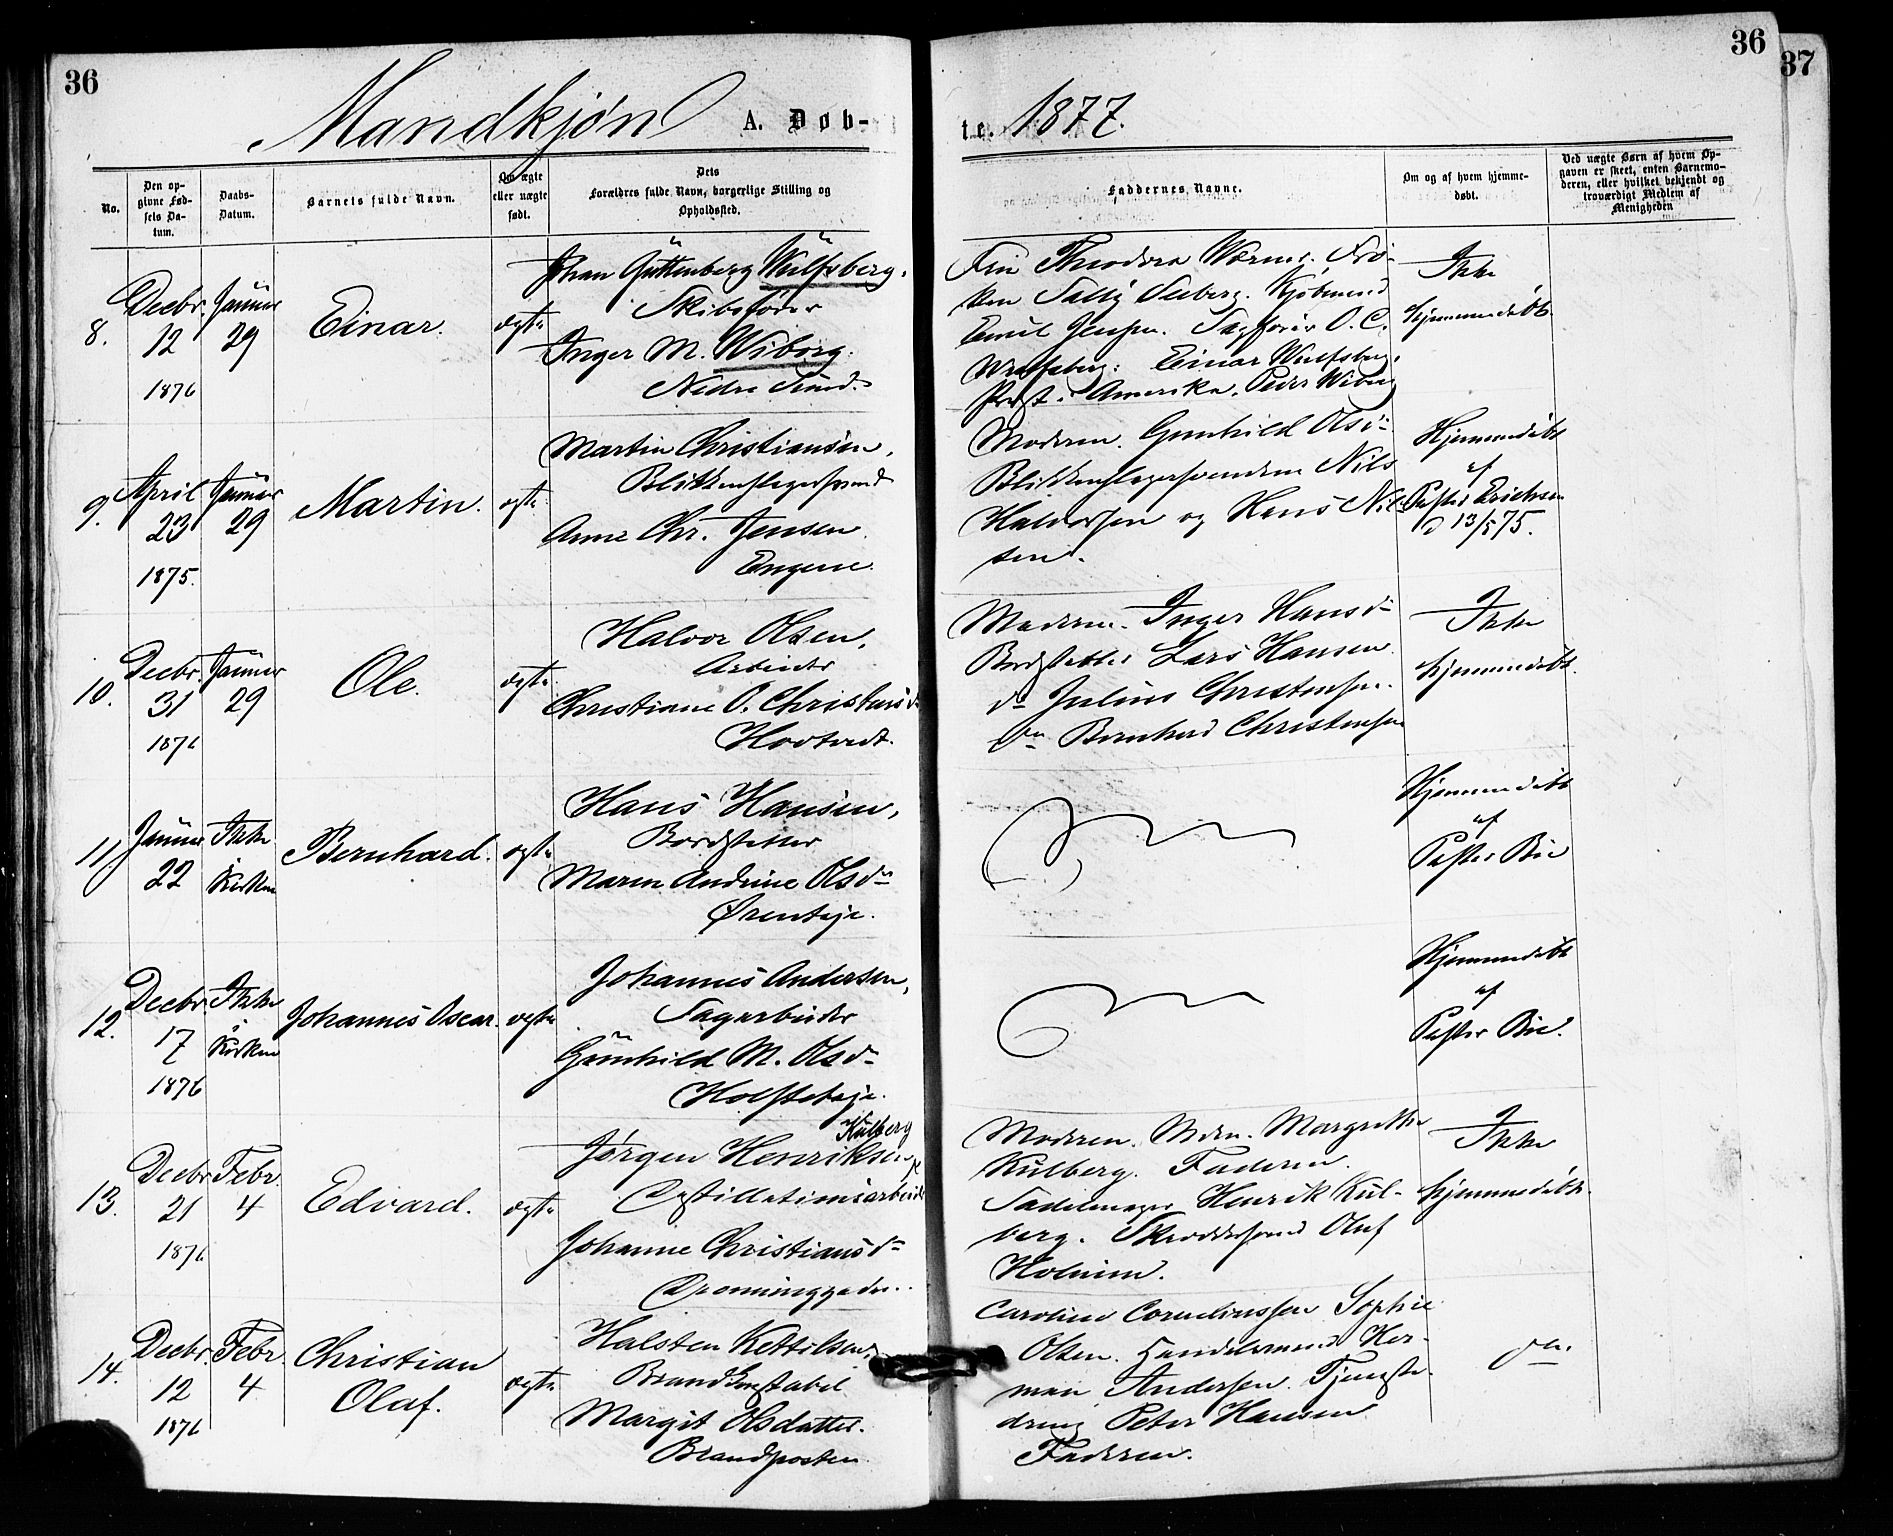 36
36
37
Mandkjøn A. Døb-
te. 1877.
No.
Den op-
givne Fød-
sels Da-
tum.
Daabs-
Datum.
Barnets fulde Navn.
Om ægte
eller uægte
født.
Dets
Forældres fulde Navn, borgerlige Stilling og
Opholdssted.
Faddernes Navne.
Om og af hvem hjemme-
døbt.
Ved uægte Børn af hvem Op-
gaven er skeet, enten Barnemo-
deren, eller hvilket bekjendt og
troværdigt Medlem af
Menigheden
8.
Decbr.
12
1876
Januar
29
Einar.
ægte
Johan Guttenberg Wulfsberg.
Skibsfører
Inger M. Wiborg.
Nedre Sund.
Theodora Wærner. Frø-
ken Sally Seeberg. Kjøbmand
Emil Jensen. Sagfører O. C.
Wulfsberg. Einar Wulfsberg.
Præst i Amerika. Peder Wiborg
Ikke
hjemmedøbt.
9.
April
23
1875.
Januar
29
Martin.
ægte
Martin Christiansen,
Blikkenslagersvend
Anne Chr. Jensen
Engene.
Moderen. Gunhild Olsd
Blikkenslagersvendene Nils
Halvorsen og Hans Nil-
sen.
Hjemmedøbt
af
Pastor Erichsen
d 13/5 75.
10.
Decbr.
31
1876
Januar
29
Ole.
ægte
Halvor Olsen,
Arbeider
Christiane O. Christensd
Hovtvedt.
Moderen. Inger Hansd
Bordstabler Lars Hansen
do Julius Christensen.
do Bernhard Christensen
Ikke
hjemmedøbt.
11.
Januar
22
Ikke
i Kirken
Bernhard.
ægte
Hans Hansen,
Bordstabler
Maren Andrine Olsdr
Ørenteje.
Hjemmedøbt
af
Pastor Bie
12.
Decbr.
17
1876
Ikke
i
Kirken
Johannes Oscar.
ægte
Johannes Andersen,
Sagarbeider
Gunhild M. Olsdr
Holsteteje.
Hjemmedøbt
af
Pastor Bie.
13.
Decbr
21
1876
Febr.
4
Edvard.
ægte
Kulberg
Jørgen Henriksen
Destillationsarbeider
Johanne Christiansdr
Dronninggaden.
Moderen. Mdm. Margrethe
Kulberg. Faderen.
Sadelmager Henrik Kul-
berg. Skræddersvend Oluf
Holmen.
Ikke
hjemmedøbt.
14.
Decbr.
12
1876
Febr.
4
Christian
Olaf.
ægte
Halsten Kettilsen,
Brandkonstabel
Margit Olsdatter.
Brandposten
Caroline Corneliussen Sophie
Olsen. Handelsmand Her-
man Andersen. Tjeneste-
dreng Peter Hansen
Faderen.
do.